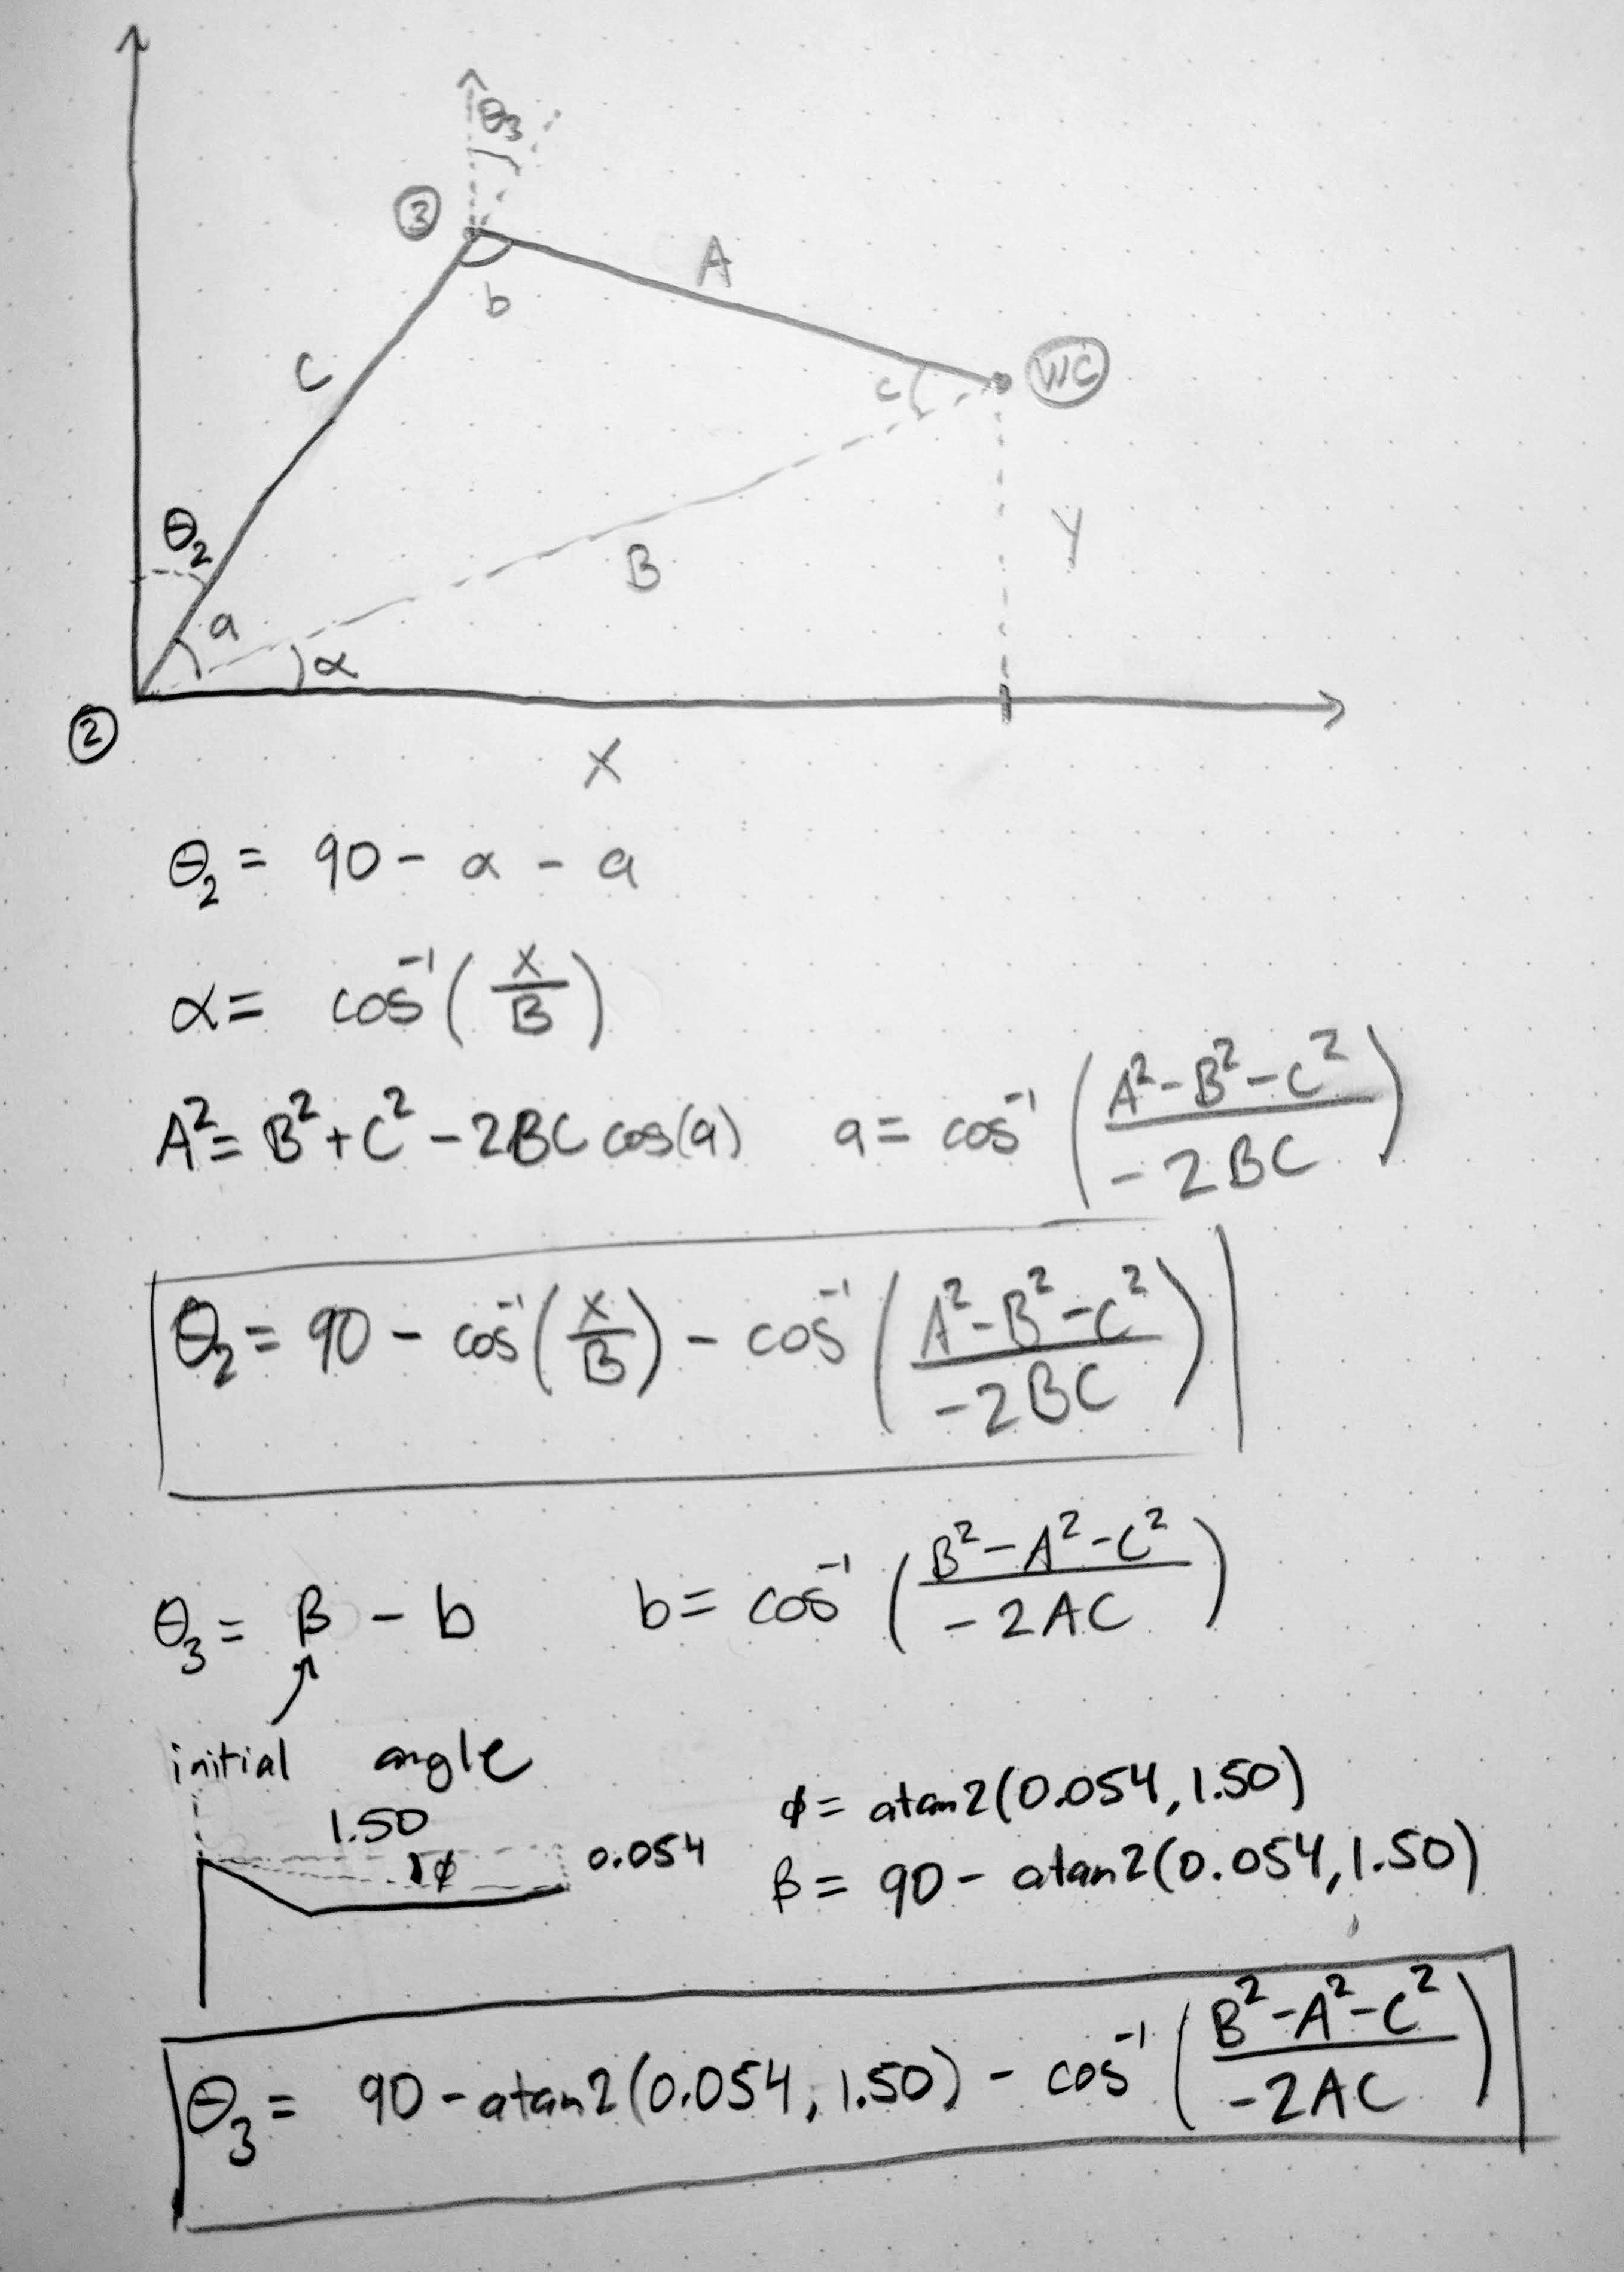 θ₃
③
A
b
C
c
WC
θ₂
B
Y
a
α
②
X
θ₂ = 90 - α - a
α = cos⁻¹(X/B)
A² = B² + C² - 2BC cos(a) a = cos⁻¹((A² - B² - C²)/(-2BC))
θ₂ = 90 - cos⁻¹(X/B) - cos⁻¹((A² - B² - C²)/(-2BC))
θ₃ = β - b b = cos⁻¹((B² - A² - C²)/(-2AC))
initial angle
1.50
ϕ
0.054
ϕ = atan2(0.054, 1.50)
β = 90 - atan2(0.054, 1.50)
θ₃ = 90 - atan2(0.054, 1.50) - cos⁻¹((B² - A² - C²)/(-2AC))